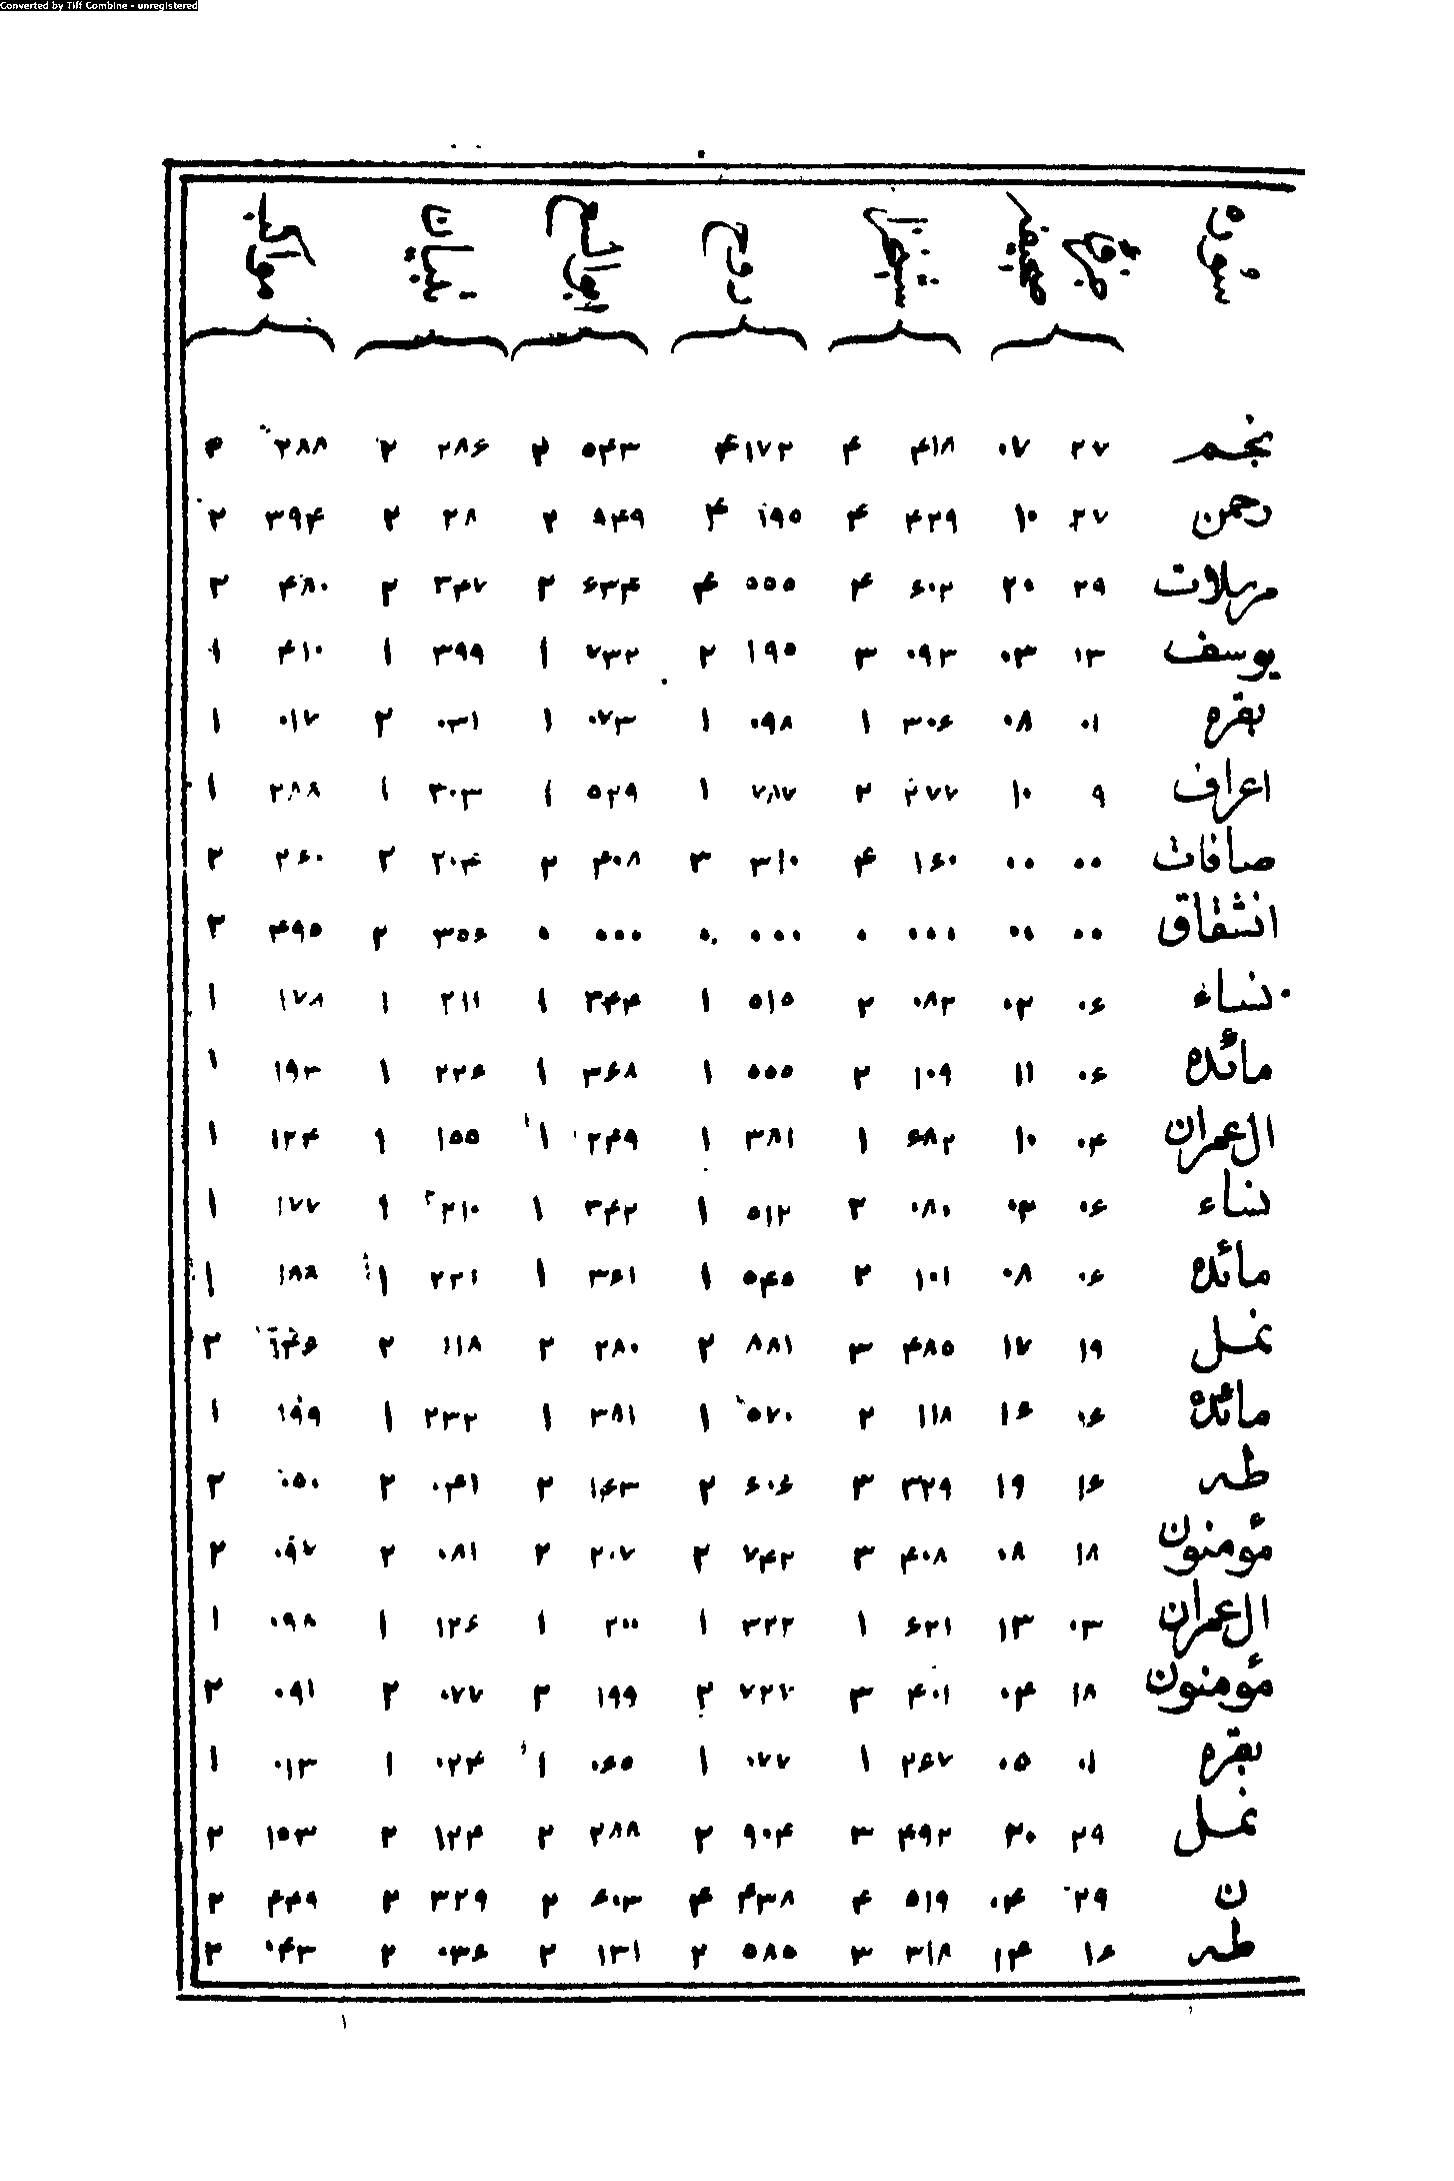 Converted by Tiff Combine - unregistered
سوره جزوی صحیفه شیخزاده روح ابوالسعود تبیان مواکب
نجم ۲۷ ۰۷ ۴۱۸ ۴ ۱۷۲ ۴ ۵۴۳ ۲ ۲۸۶ ۲ ۲۸۸
رحمن ۲۷ ۱۰ ۴۲۹ ۴ ۱۹۵ ۴ ۲ ۲۸ ۲ ۳۹۴ ۲
۲۹ ۲۰ ۶۰۲ ۴ ۵۵۵ ۴ ۶۳۴ ۲ ۳۴۷ ۲ ۴۸۰ ۲
یوسف ۱۳ ۰۳ ۰۹۳ ۳ ۱۹۵ ۲ ۷۳۲ ۱ ۳۹۹ ۱ ۴۱۰ ۱
بقره ۰۱ ۰۸ ۳۰۶ ۱ ۰۹۸ ۱ ۰۷۳ ۱ ۰۳۱ ۲ ۰۱۷ ۱
اعراف ۹ ۱۰ ۲۷۷ ۲ ۷۸۷ ۱ ۵۲۹ ۱ ۳۰۳ ۱ ۲۸۸ ۱
صافات ۰۰ ۰۰ ۱۶۰ ۴ ۳۱۰ ۳ ۴۰۸ ۲ ۲۰۴ ۲ ۲۶۰ ۲
انشقاق ۰۰ ۰۰ ۰۰۰ ۰ ۰۰۰ ۰ ۰۰۰ ۰ ۳۵۶ ۲ ۴۹۵ ۲
نساء ۰۶ ۰۲ ۰۸۲ ۲ ۵۱۵ ۱ ۳۴۴ ۱ ۲۱۱ ۱ ۱۷۸ ۱
مائده ۰۶ ۱۱ ۱۰۹ ۲ ۵۵۵ ۱ ۳۶۸ ۱ ۲۲۶ ۱ ۱۹۳ ۱
ال عمران ۰۴ ۱۰ ۶۸۲ ۱ ۳۸۱ ۱ ۲۴۹ ۱ ۱۵۵ ۱ ۱۲۴ ۱
نساء ۰۶ ۰۳ ۰۸۰ ۲ ۵۱۲ ۱ ۳۴۲ ۱ ۲۱۰ ۱ ۱۷۷ ۱
مائده ۰۶ ۰۸ ۱۰۱ ۲ ۵۴۵ ۱ ۳۶۱ ۱ ۲۲۱ ۱ ۱۸۸ ۱
نمل ۱۹ ۱۷ ۴۸۵ ۳ ۸۸۱ ۲ ۲۸۰ ۲ ۱۱۸ ۲ ۱۴۶ ۲
مائده ۰۶ ۱۶ ۱۱۸ ۲ ۵۷۰ ۱ ۳۸۱ ۱ ۲۳۲ ۱ ۱۹۹ ۱
طه ۱۶ ۱۹ ۳۲۹ ۳ ۶۰۶ ۲ ۱۴۳ ۲ ۰۴۱ ۲ ۰۵۰ ۲
مؤمنون ۱۸ ۰۸ ۴۰۸ ۳ ۷۴۲ ۲ ۲۰۷ ۲ ۰۸۱ ۲ ۰۹۷ ۲
ال عمران ۰۳ ۱۳ ۶۲۱ ۱ ۳۲۲ ۱ ۲۰۰ ۱ ۱۲۶ ۱ ۰۹۸ ۱
مؤمنون ۱۸ ۰۴ ۴۰۱ ۳ ۷۲۷ ۲ ۱۹۹ ۲ ۰۷۷ ۲ ۰۹۱ ۲
بقره ۰۱ ۰۵ ۲۶۷ ۱ ۰۷۷ ۱ ۰۶۵ ۱ ۰۲۴ ۱ ۰۱۳ ۱
نمل ۲۹ ۲۰ ۴۹۲ ۳ ۹۰۴ ۲ ۲۸۸ ۲ ۱۲۴ ۲ ۱۵۳ ۲
ن ۲۹ ۰۴ ۵۱۹ ۴ ۴۳۸ ۴ ۶۰۳ ۲ ۳۲۹ ۲ ۴۴۹ ۲
طه ۱۶ ۱۴ ۳۱۸ ۳ ۵۸۵ ۲ ۱۳۱ ۲ ۰۳۶ ۲ ۰۴۳ ۲